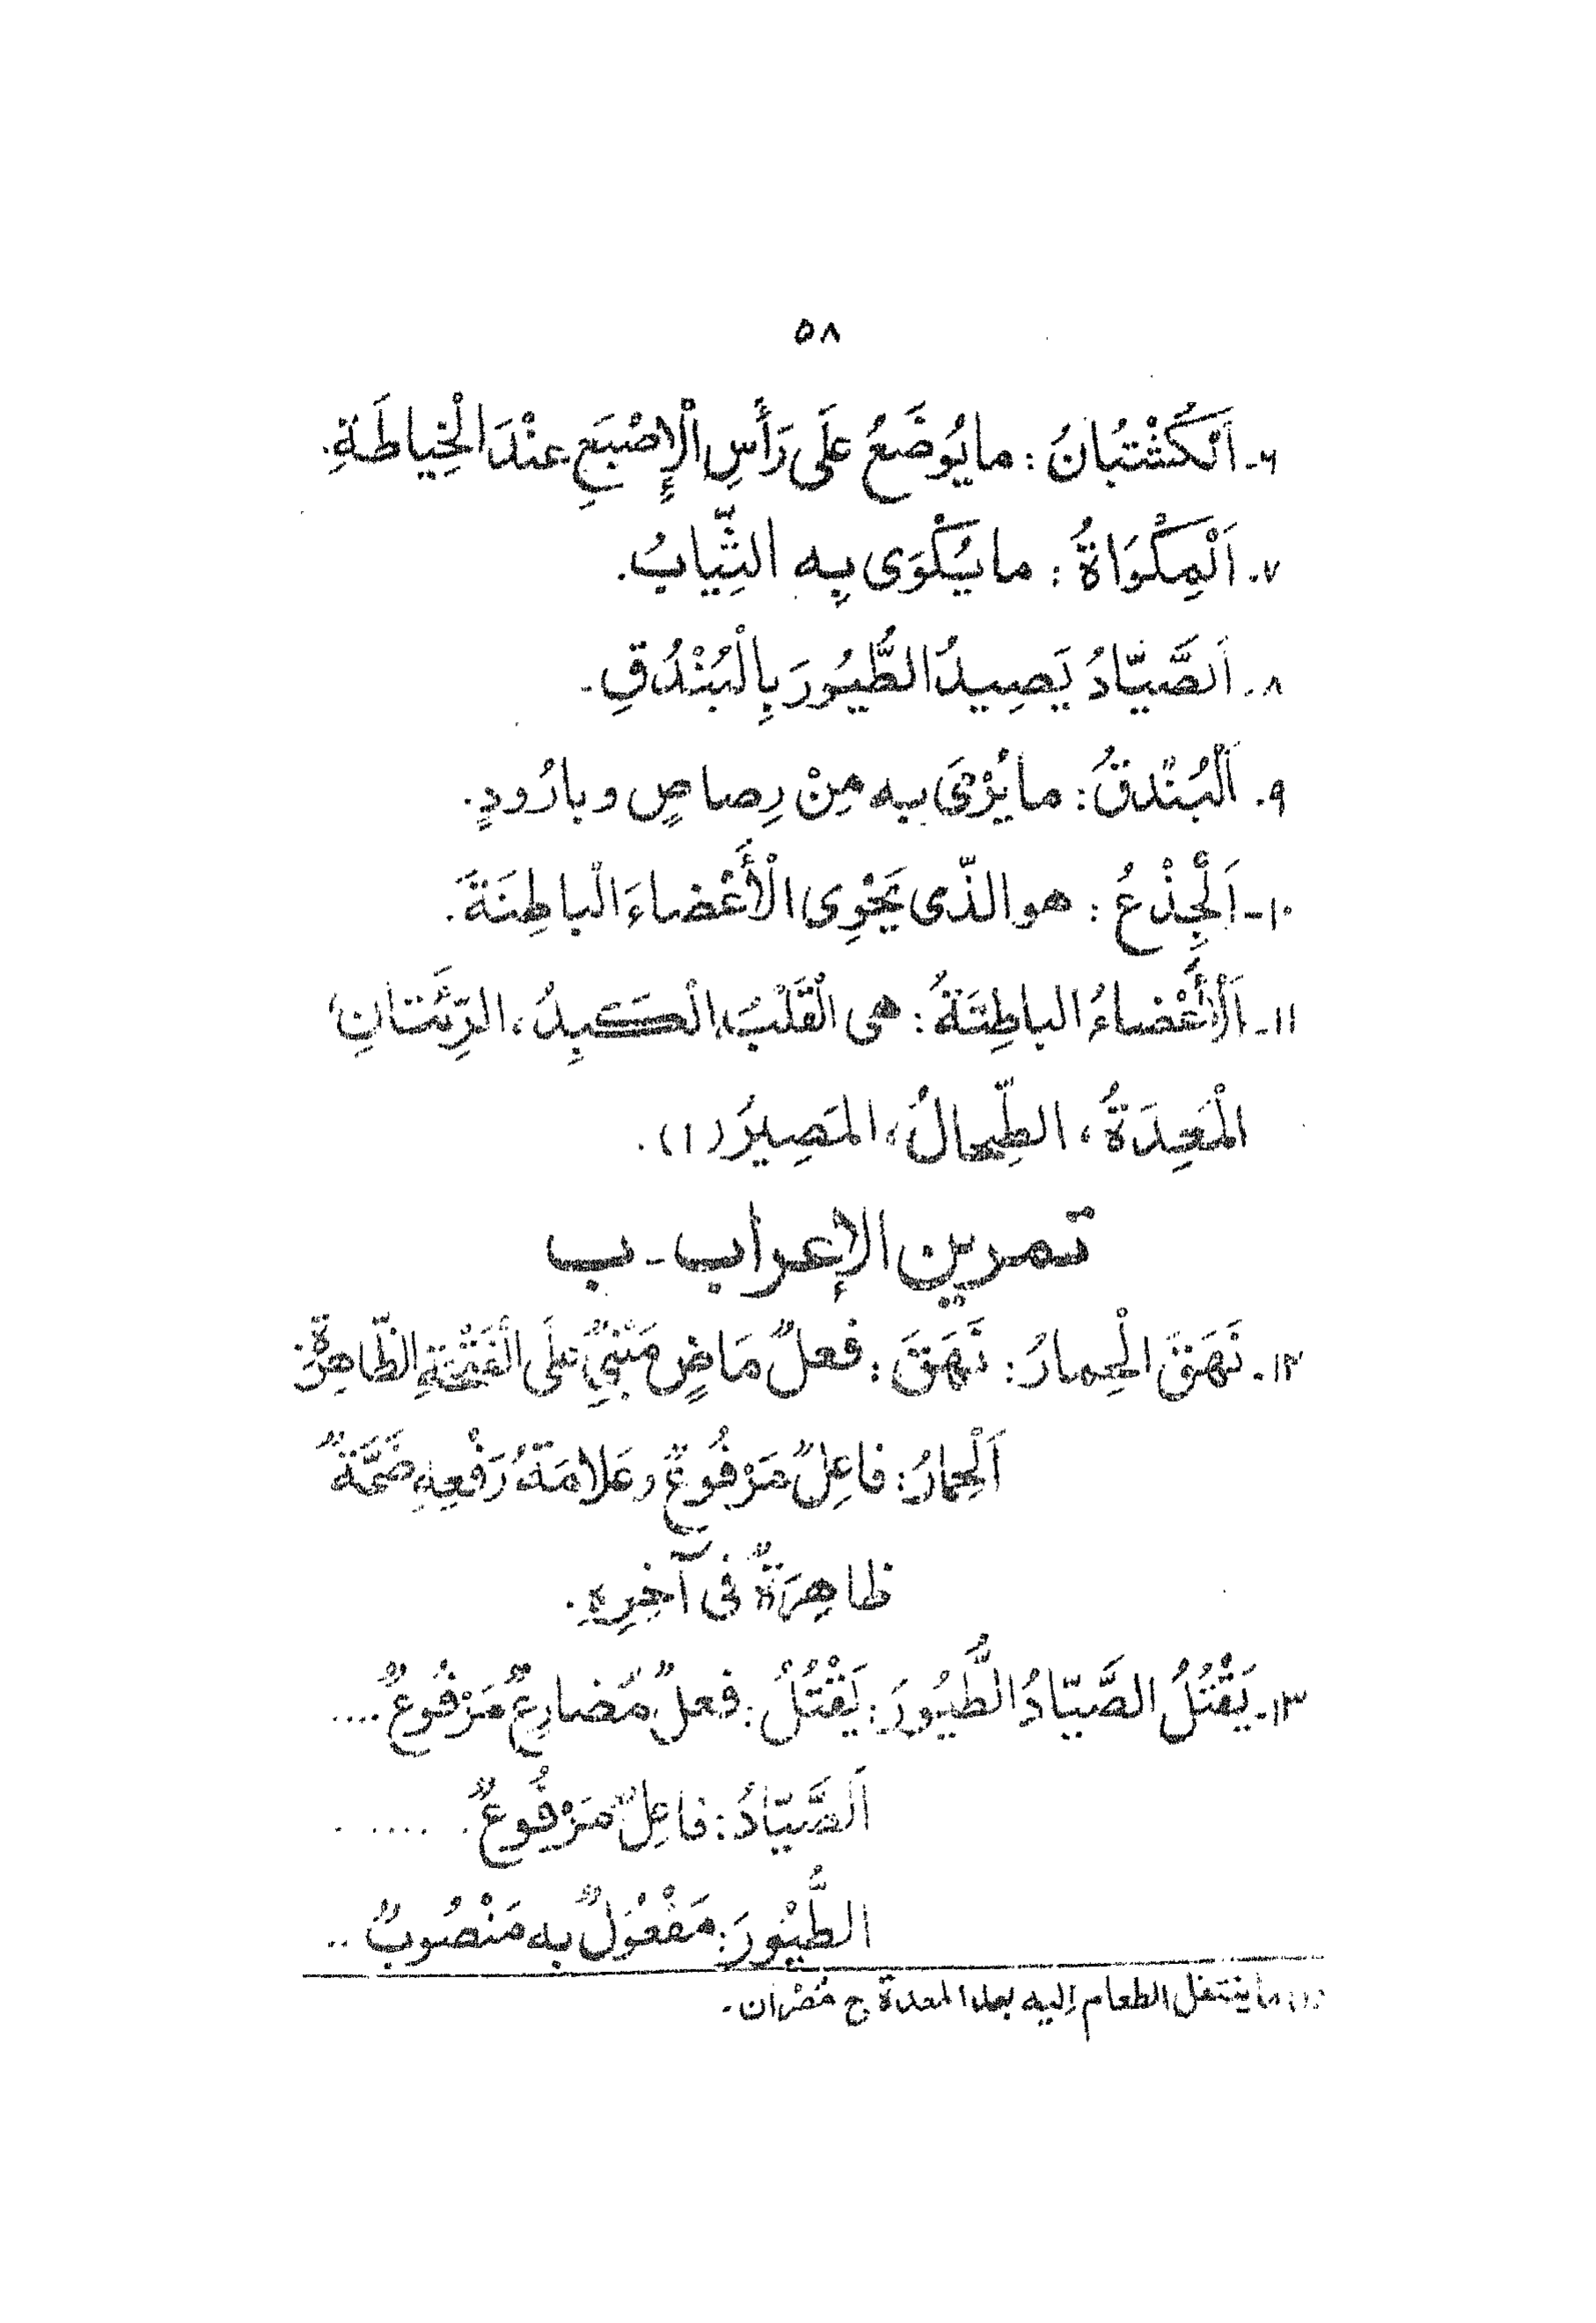 ٥٨
٦- اَلْكُشْتُبَانُ : ما يُوضَعُ عَلَى رَأْسِ الْإِصْبَعِ عِنْدَ الْخِياطَةِ.
٧- اَلْمِكْوَاةُ : ما يُكْوَى بِه الثِّيابُ.
٨- اَلصَّيّادُ يَصِيدُ الطُّيُورَ بِالْبُنْدُقِ -
٩- اَلْبُنْدُقُ : ما يُرْمَى بِه مِنْ رِصاصٍ وبارُودٍ.
١٠- اَلْجِذْعُ : هو الذّى يَحْوِى الْأَعْضاءَ الْباطِنَةَ.
١١- اَلْأَعْضاءُ الباطِنَةُ : هى الْقَلْبُ، الْكَبِدُ، الرِّئَتانِ،
الْمَعِدَةُ، الطِّحالُ، المَصِيرُ (١).
تمرين الإعراب - ب
١٢- نَهَقَ الْحِمارُ : نَهَقَ : فعلٌ مَاضٍ مَبْنِيٌّ عَلَى الْفَتْحَةِ الظّاهِرةِ.
اَلْحِمارُ : فاعِلٌ مَرْفُوعٌ وعَلامَةُ رَفْعِهِ ضَمَّةٌ
ظاهِرَةٌ فى آخِرِهِ.
١٣- يَقْتُلُ الصَّيّادُ الطُّيُورَ : يَقْتُلُ : فعلٌ مُضارِعٌ مَرْفُوعٌ ....
اَلصَّيّادُ : فاعِلٌ مَرْفُوعٌ. .....
الطُّيُورَ : مَفْعُولٌ به مَنْصُوبٌ ..
(١) ما ينتقل الطعام إليه بعد المعدة ج مُصْران -